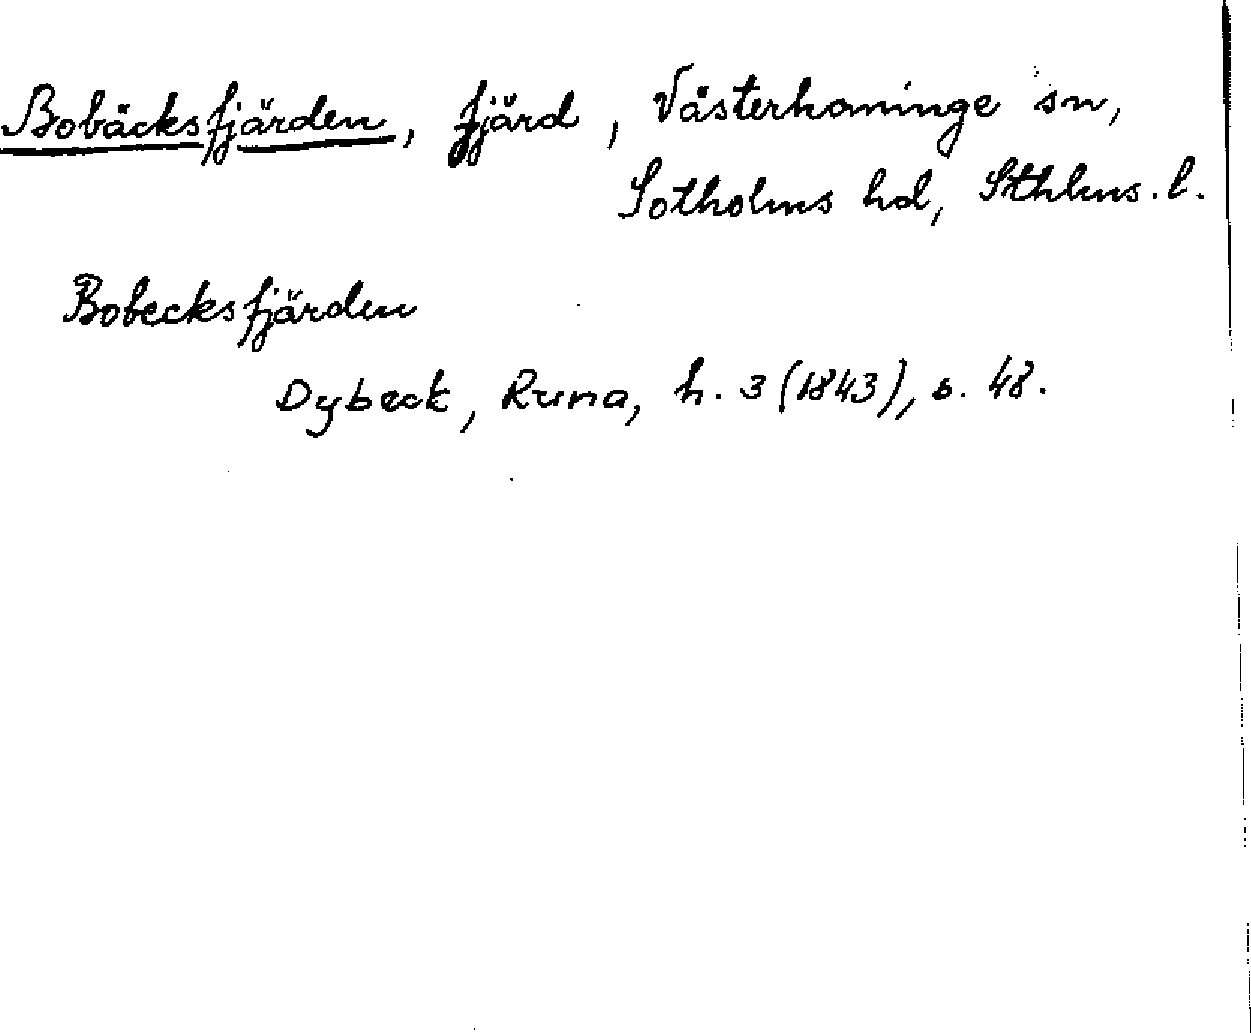 Bobäcksfjärden, fjärd, Västerhaninge sn,
Sotholms hd, Sthlms. l.
Bobecksfjärden
Dybeck, Runa, h. 3 (1843), s. 48.